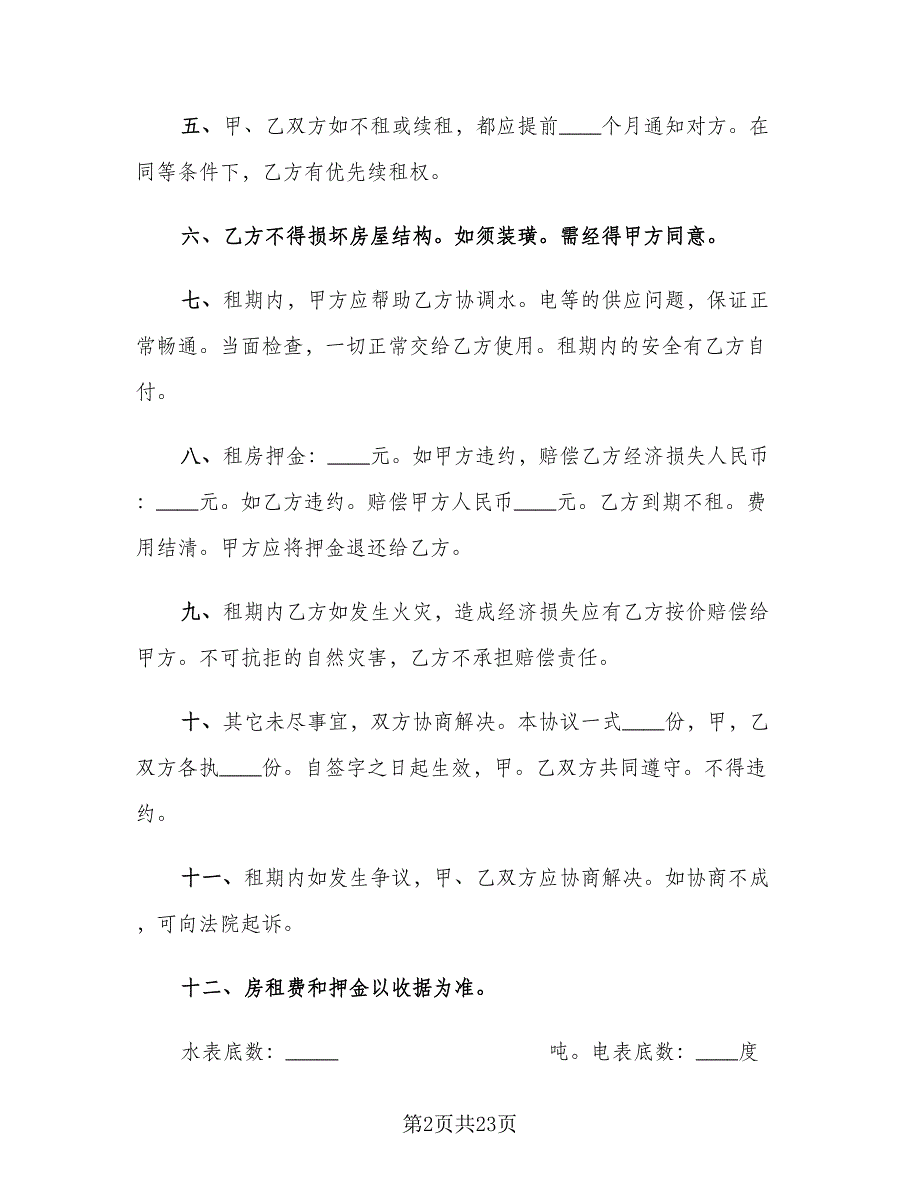 五、甲、乙双方如不租或续租，都应提前____个月通知对方。在
同等条件下，乙方有优先续租权。
六、乙方不得损坏房屋结构。如须装璜。需经得甲方同意。
七、租期内，甲方应帮助乙方协调水。电等的供应问题，保证正
常畅通。当面检查，一切正常交给乙方使用。租期内的安全有乙方自
付。
八、租房押金：____元。如甲方违约，赔偿乙方经济损失人民币
：____元。如乙方违约。赔偿甲方人民币____元。乙方到期不租。费
用结清。甲方应将押金退还给乙方。
九、租期内乙方如发生火灾，造成经济损失应有乙方按价赔偿给
甲方。不可抗拒的自然灾害，乙方不承担赔偿责任。
十、其它未尽事宜，双方协商解决。本协议一式____份，甲，乙
双方各执____份。自签字之日起生效，甲。乙双方共同遵守。不得违
约。
十一、租期内如发生争议，甲、乙双方应协商解决。如协商不成
，可向法院起诉。
十二、房租费和押金以收据为准。
水表底数：_____ 吨。电表底数：____度
第2页共23页